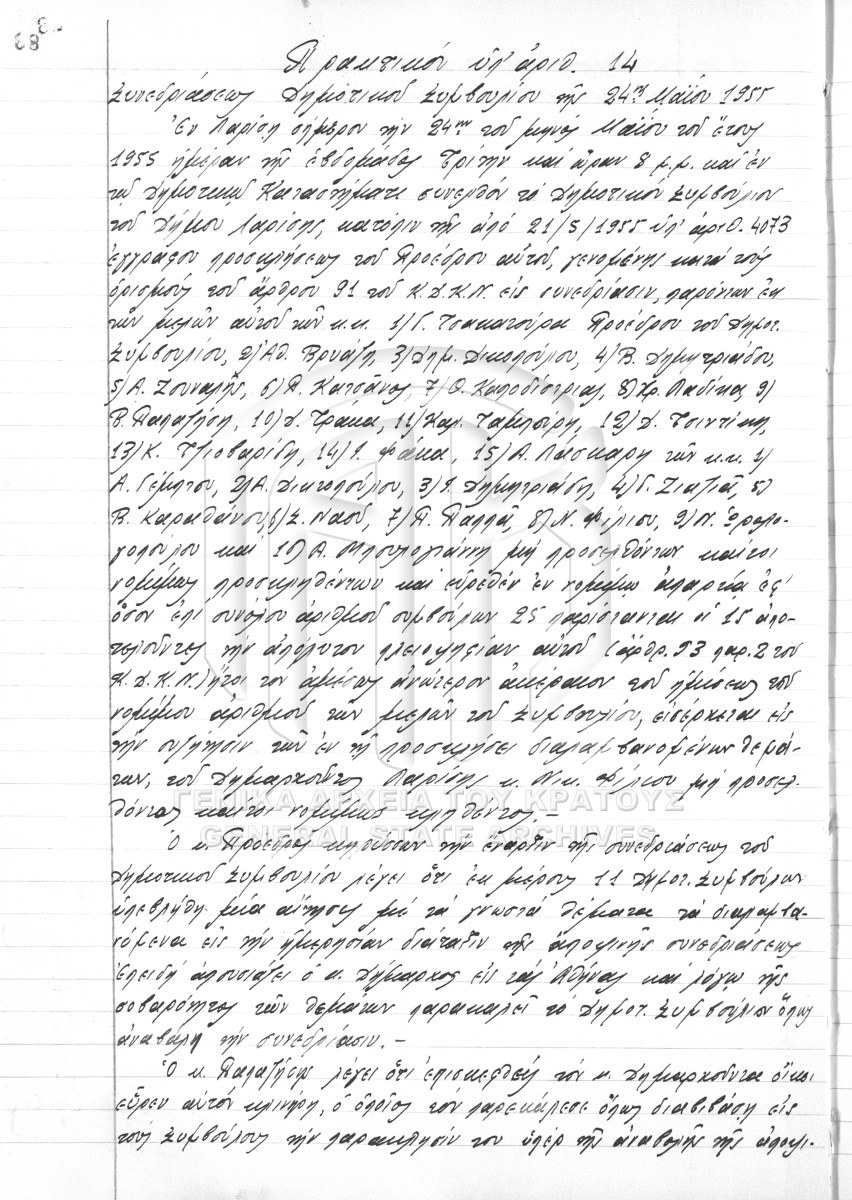 83
Πρακτικόν ὑπ' ἀριθ. 14
Συνεδριάσεως Δημοτικοῦ Συμβουλίου τῆς 24ης Μαΐου 1955
Ἐν Λαρίσῃ σήμερον τήν 24ην τοῦ μηνός Μαΐου τοῦ ἔτους
1955 ἡμέραν τῆς ἑβδομάδος Τρίτην καί ὥραν 8 μ.μ. καί ἐν
τῷ Δημοτικῷ Καταστήματι συνελθόν τό Δημοτικόν Συμβούλιον
τοῦ Δήμου Λαρίσης, κατόπιν τῆς ἀπό 21/5/1955 ὑπ' ἀριθ. 4073
ἐγγράφου προσκλήσεως τοῦ Προέδρου αὐτοῦ, γενομένης κατά τούς
ὁρισμούς τοῦ ἄρθρου 91 τοῦ Κ.Δ.Κ.Ν. εἰς συνεδρίασιν, παρόντων ἐκ
τῶν μελῶν αὐτοῦ τῶν κ.κ. 1) Γ. Τσακατούρα Προέδρου τοῦ Δημοτ.
Συμβουλίου, 2) Ἀθ. Βρυάζη, 3) Δημ. Δικοπούλου, 4) Β. Δημητριάδου,
5) Α. Ζουναλῆς, 6) Π. Κατσάνος, 7) Θ. Καποδίστριας, 8) Χρ. Λαδίκας 9)
Β. Παπαζήση, 10) Δ. Τράκα, 11) Καλ. 12) Δ. Τσιντίκη,
13) Κ. Τζιοβαρίδη, 14) Ι. Φάκα, 15) Α. Λάσκαρη τῶν κ.κ. 1)
Α. Γέμπτου, 2) Α. Δικοπούλου, 3) Ι. Δημητριάδη, 4) Γ. Ζιαζιᾶ, 5)
Β. Καραθάνου, 6) Σ. Νασῦ, 7) Π. Παππᾶ, 8) Ν. Φίλιου, 9) Ν. Ὡρολο-
γοπούλου καί 10) Α. Μπουλογιάννη μή προσελθόντων καίτοι
νομίμως προσκληθέντων καί εὑρεθέν ἐν νομίμῳ ἀπαρτίᾳ ἐφ'
ὅσον ἐπί συνόλου ἀριθμοῦ συμβούλων 25 παρίστανται οἱ 15 ἀπο-
τελοῦντες τήν ἀπόλυτον πλειοψηφίαν αὐτοῦ (ἄρθρ. 93 παρ. 2 τοῦ
Κ.Δ.Κ.Ν.) ἤτοι τόν ἀμέσως ἀνώτερον ἀκέραιον τοῦ ἡμίσεως τοῦ
νομίμου ἀριθμοῦ τῶν μελῶν τοῦ Συμβουλίου, εἰσέρχεται εἰς
τήν συζήτησιν τῶν ἐν τῇ προσκλήσει διαλαμβανομένων θεμά-
των, τοῦ Δημαρχοῦντος Λαρίσης κ. Νικ. Φίλιου μή προσελ-
θόντος καίτοι νομίμως κληθέντος.-
ΓΕΝΙΚΑ ΑΡΧΕΙΑ ΤΟΥ ΚΡΑΤΟΥΣ
GENERAL STATE ARCHIVES
Ὁ κ. Πρόεδρος κηρύσσων τήν ἔναρξιν τῆς συνεδριάσεως τοῦ
Δημοτικοῦ Συμβουλίου λέγει ὅτι ἐκ μέρους 11 Δημοτ. Συμβούλων
ὑπεβλήθη μία αἴτησις μέ τά γνωστά θέματα τά διαλαμβα-
νόμενα εἰς τήν ἡμερησίαν διάταξιν τῆς ἀποψινῆς συνεδριάσεως
ἐπειδή ἀπουσιάζει ὁ κ. Δήμαρχος εἰς τάς Ἀθήνας καί λόγῳ τῆς
σοβαρότητος τῶν θεμάτων παρακαλεῖ τό Δημοτ. Συμβούλιον ὅπως
ἀναβάλῃ τήν συνεδρίασιν.-
Ὁ κ. Παπαζήσης λέγει ὅτι ἐπισκεφθείς τόν κ. Δημαρχοῦντα οἴκοι
εὗρεν αὐτόν κλινήρη, ὁ ὁποῖος τόν παρεκάλεσε ὅπως διαβιβάσῃ εἰς
τούς Συμβούλους τήν παράκλησίν του ὑπέρ τῆς ἀναβολῆς τῆς ἀποψι-